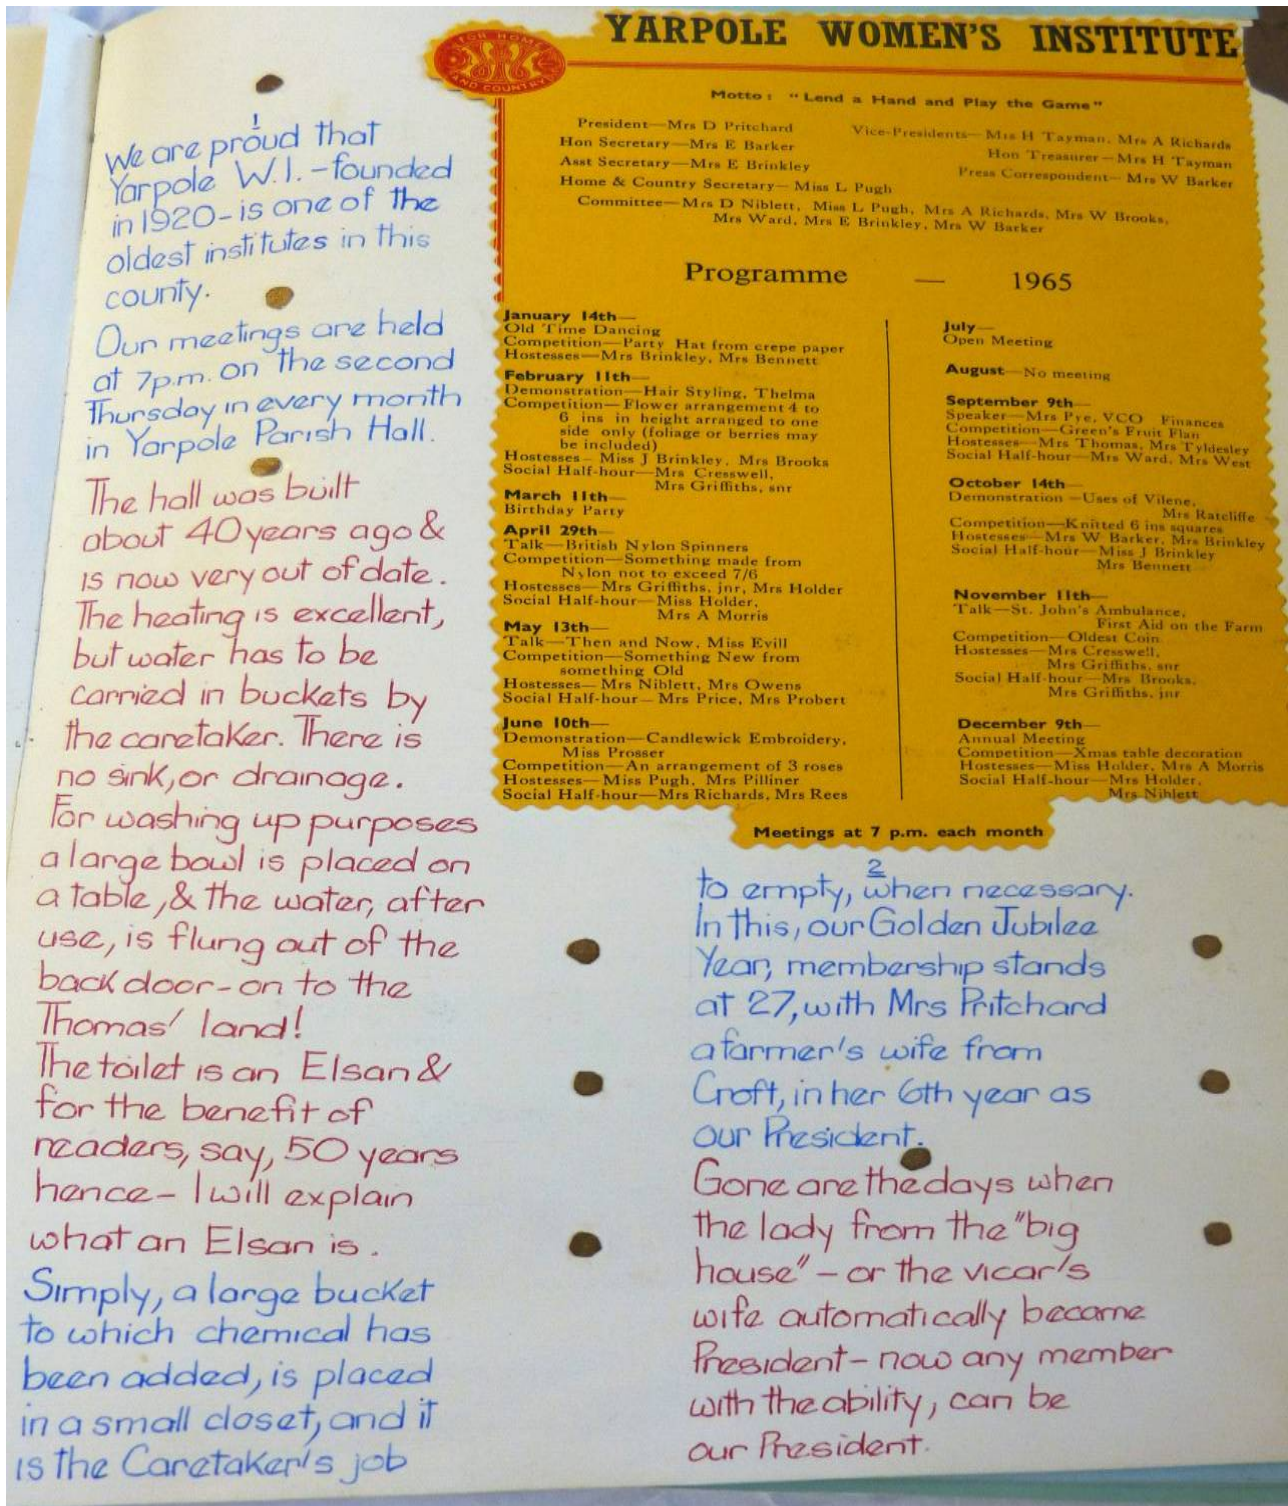 YARPOLE WOMEN'S INSTITUTE
FOR HOME
AND COUNTRY
Motto: "Lend a Hand and Play the Game"
President—Mrs D Pritchard
Vice-Presidents—Mrs H Tayman, Mrs A Richards
Hon Secretary—Mrs E Barker
Hon Treasurer—Mrs H Tayman
Asst Secretary—Mrs E Brinkley
Press Correspondent—Mrs W Barker
Home & Country Secretary—Miss L Pugh
Committee—Mrs D Niblett, Miss L Pugh, Mrs A Richards, Mrs W Brooks,
Mrs Ward, Mrs E Brinkley, Mrs W Barker
Programme — 1965
January 14th—
Old Time Dancing
Competition—Party Hat from crepe paper
Hostesses—Mrs Brinkley, Mrs Bennett
February 11th—
Demonstration—Hair Styling, Thelma
Competition—Flower arrangement 4 to
6 ins in height arranged to one
side only (foliage or berries may
be included)
Hostesses—Miss J Brinkley, Mrs Brooks
Social Half-hour—Mrs Cresswell,
Mrs Griffiths, snr
March 11th—
Birthday Party
April 29th—
Talk—British Nylon Spinners
Competition—Something made from
Nylon not to exceed 7/6
Hostesses—Mrs Griffiths, jnr, Mrs Holder
Social Half-hour—Miss Holder,
Mrs A Morris
May 13th—
Talk—Then and Now, Miss Evill
Competition—Something New from
something Old
Hostesses—Mrs Niblett, Mrs Owens
Social Half-hour—Mrs Price, Mrs Probert
June 10th—
Demonstration—Candlewick Embroidery,
Miss Prosser
Competition—An arrangement of 3 roses
Hostesses—Miss Pugh, Mrs Pilliner
Social Half-hour—Mrs Richards, Mrs Rees
July—
Open Meeting
August—No meeting
September 9th—
Speaker—Mrs Pye, VCO Finances
Competition—Green's Fruit Flan
Hostesses—Mrs Thomas, Mrs Tyldesley
Social Half-hour—Mrs Ward, Mrs West
October 14th—
Demonstration—Uses of Vilene,
Mrs Ratcliffe
Competition—Knitted 6 ins squares
Hostesses—Mrs W Barker, Mrs Brinkley
Social Half-hour—Miss J Brinkley
Mrs Bennett
November 11th—
Talk—St. John's Ambulance,
First Aid on the Farm
Competition—Oldest Coin
Hostesses—Mrs Cresswell,
Mrs Griffiths, snr
Social Half-hour—Mrs Brooks,
Mrs Griffiths, jnr
December 9th—
Annual Meeting
Competition—Xmas table decoration
Hostesses—Miss Holder, Mrs A Morris
Social Half-hour—Mrs Holder,
Mrs Niblett
Meetings at 7 p.m. each month
1
We are proud that
Yarpole W.I. - founded
in 1920 - is one of the
oldest institutes in this
county.
Our meetings are held
at 7p.m. on the second
Thursday in every month
in Yarpole Parish Hall.
The hall was built
about 40 years ago &
is now very out of date.
The heating is excellent,
but water has to be
carried in buckets by
the caretaker. There is
no sink, or drainage.
For washing up purposes
a large bowl is placed on
a table, & the water, after
use, is flung out of the
back door - on to the
Thomas' land!
The toilet is an Elsan &
for the benefit of
readers, say, 50 years
hence - I will explain
what an Elsan is.
Simply, a large bucket
to which chemical has
been added, is placed
in a small closet, and it
is the Caretaker's job
2
to empty, when necessary.
In this, our Golden Jubilee
Year, membership stands
at 27, with Mrs Pritchard
a farmer's wife from
Croft, in her 6th year as
our President.
Gone are the days when
the lady from the "big
house" - or the vicar's
wife automatically became
President - now any member
with the ability, can be
our President.